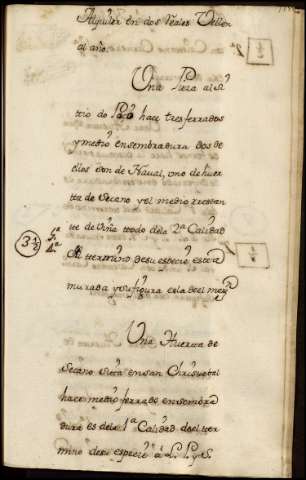 Alquiler en dos Reales Vellon
al año.
Una Pieza al Si
tio do hace tres ferrados
y medio en sembradura dos de
ellos son de Naval, uno de huer
ta de Secano y el medio restan
te de Viña todo de la 2ª Calidad
3 1/2
2ª
el termino de su especie está a
murada y su figura es la del margn
1/2
Una Huerta de
Secano Sita en san Christobal
hace medio ferrado en sembra
dura es de la 1ª Calidad de el ter
mino de su especie á L. P. y S.